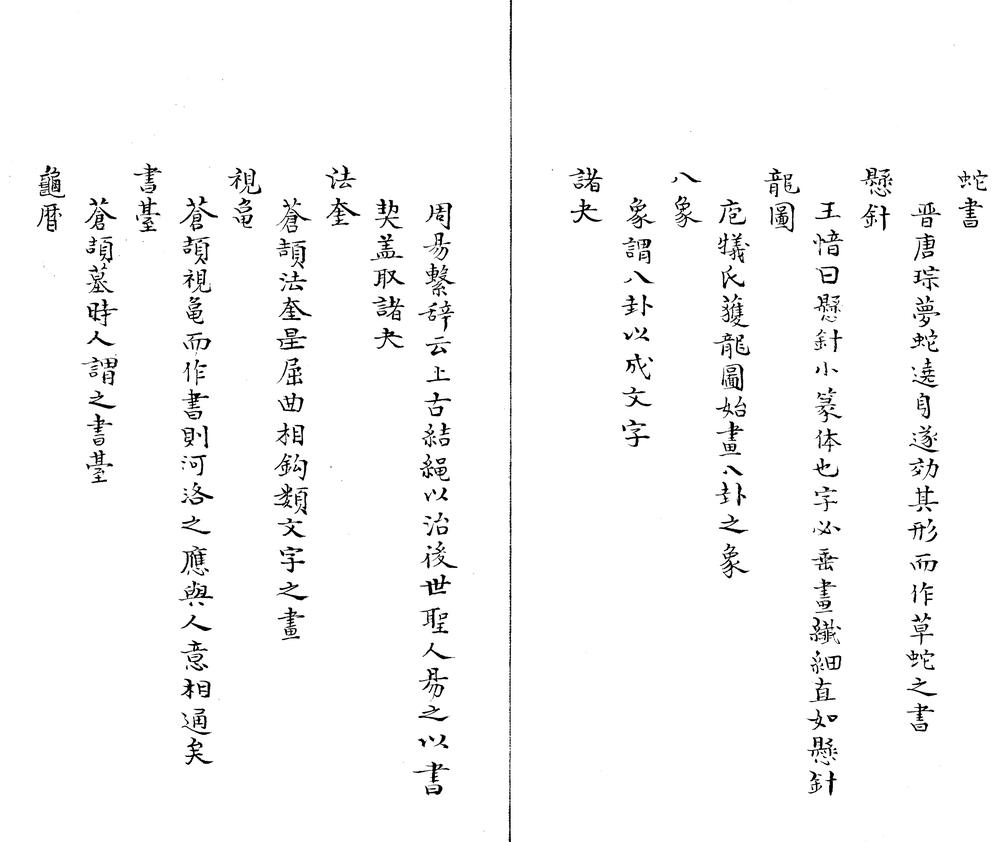 蛇書
晋唐琮夢蛇遶身遂効其形而作草蛇之書
懸針
王愔曰懸針小篆体也字必垂畫纖細直如懸針
龍圖
庖犧氏獲龍圖始畫八卦之象
八象
象謂八卦以成文字
諸夬
周易繫辞云上古結繩以治後世聖人易之以書
契盖取諸夬
法奎
蒼頡法奎星屈曲相鈎類文字之畫
視亀
蒼頡視亀而作書則河洛之應與人意相通矣
書臺
蒼頡墓時人謂之書臺
龜暦